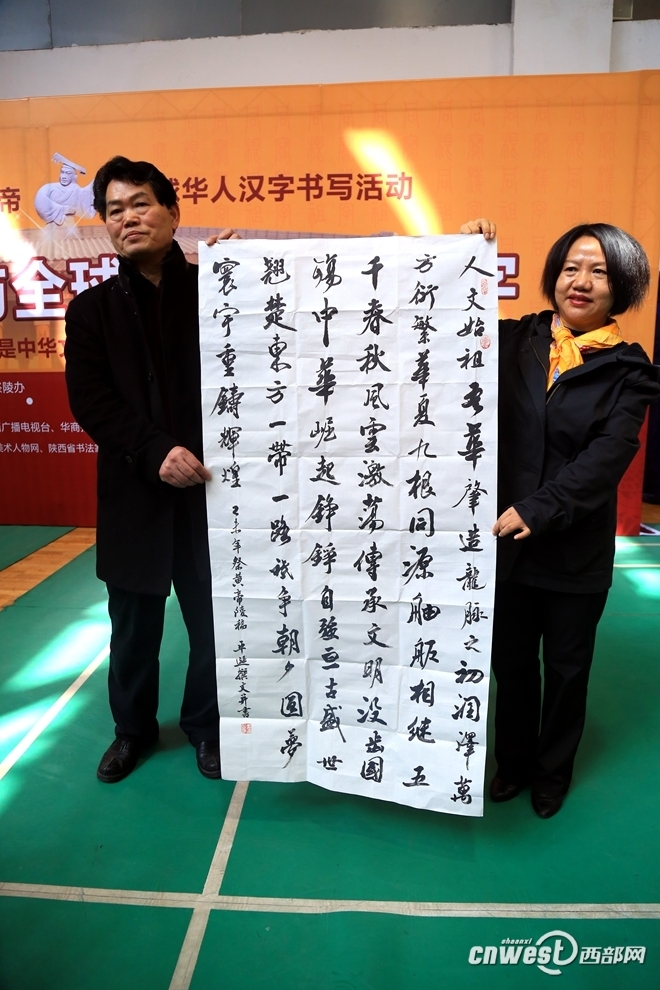 帝 华人汉字书写活动
全球 字
是中华
陵办
广播电视台、华商
美术人物网、陕西省书法
人文始祖吾華肇造龍脉之初润澤萬
方衍繁華夏九根同源舳舨相继五
千春秋風雲激荡傳承文明没齿國
殇中華崛起錚錚自强亘古盛世
翘楚東方一带一路祗争朝夕圆夢
寰宇重鑄輝煌
乙未年祭黄帝陵稿 平 撰文并書
shaanxi
cnwest 西部网